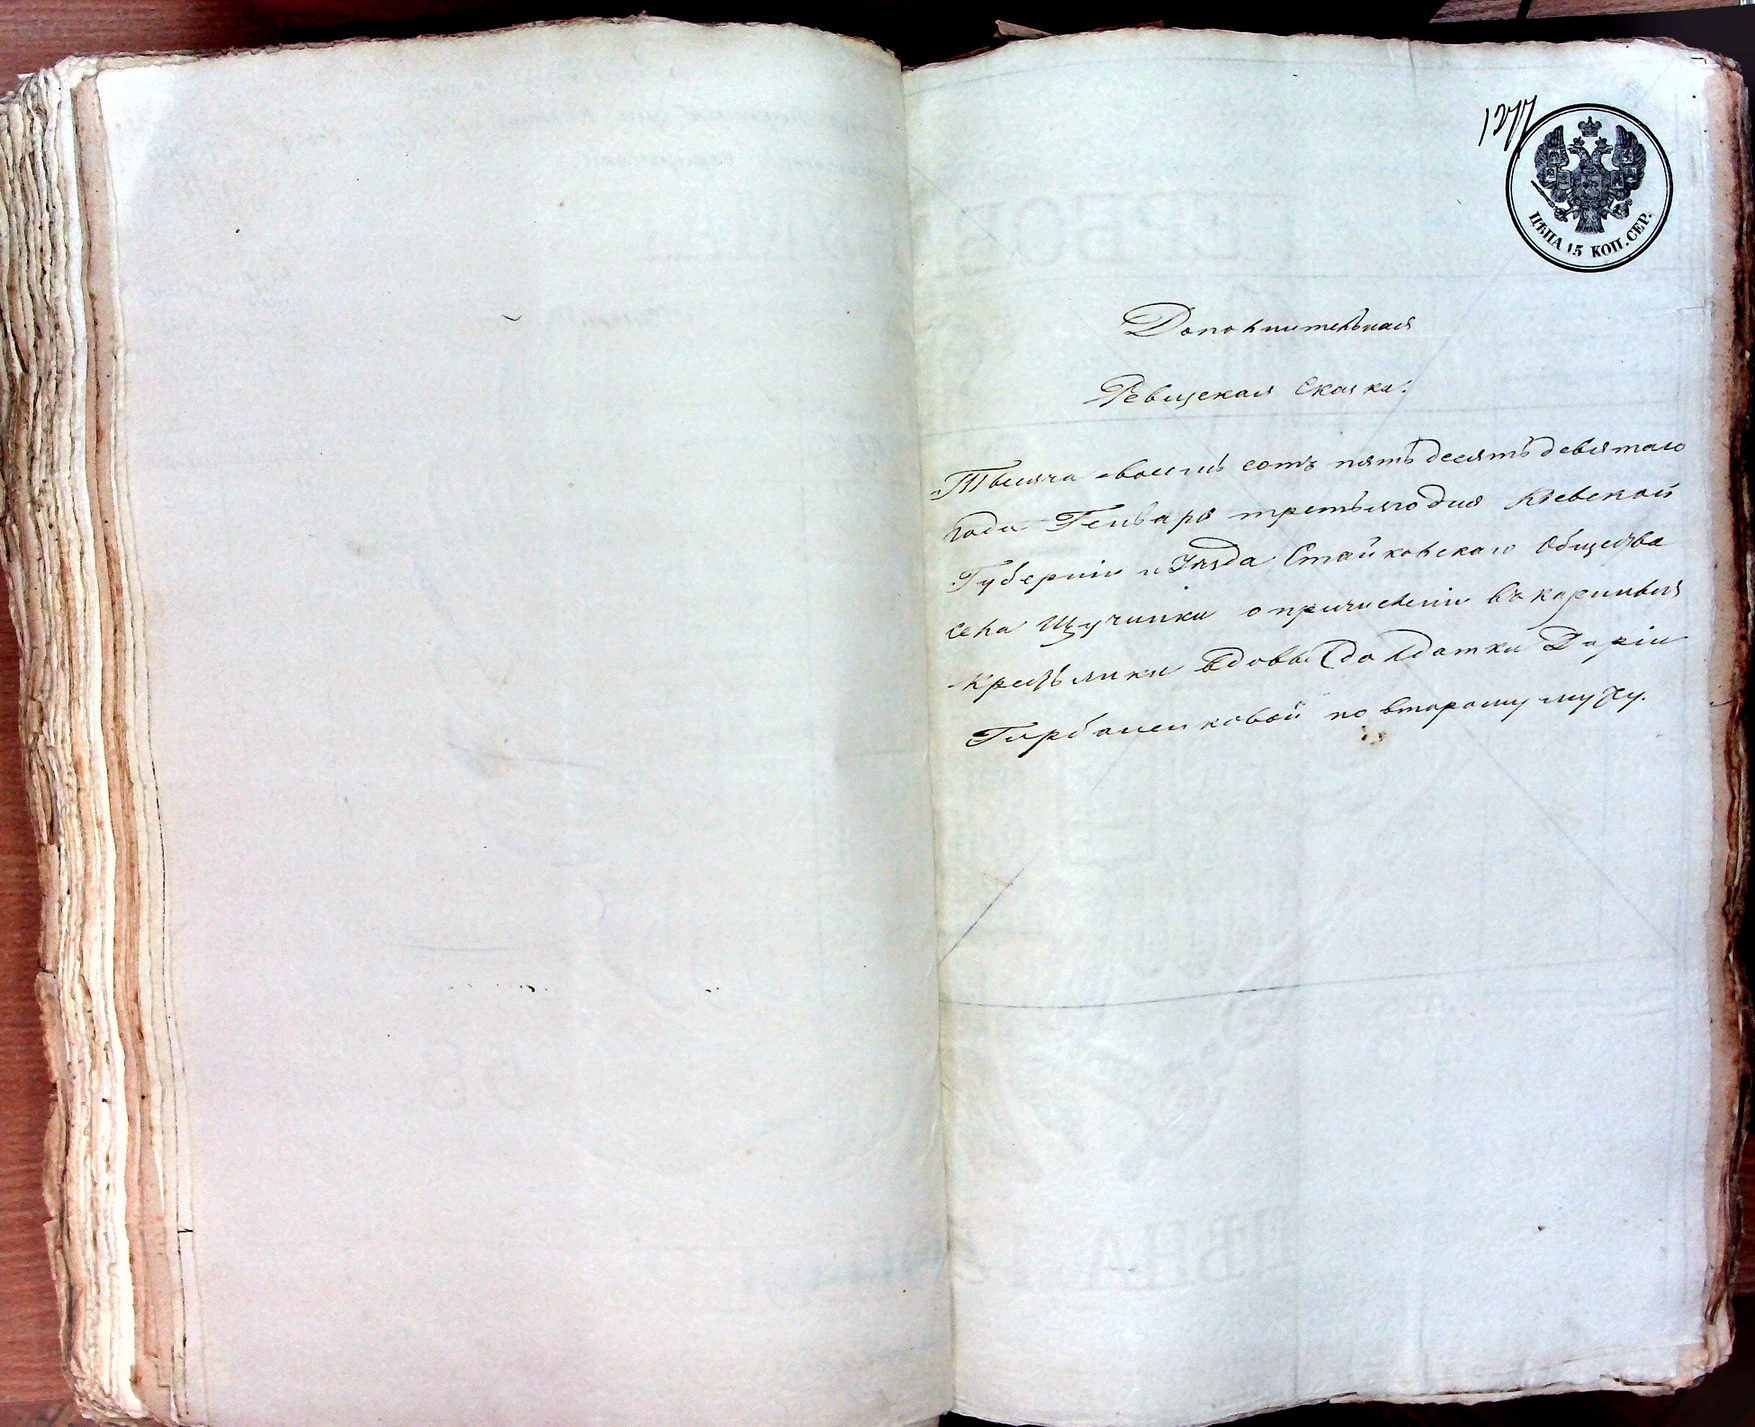 1277
ЦѢНА 15 КОП. СЕР.
Дополнительная
Ревизская Сказка.
Тысяча восемь сотъ пятьдесятъ девятаго
года Генваря третьяго дня Кіевской
Губерніи и Уезда Стайковскаго Общества
села Щучинки о причисленіи въ коринныя
Крестьянки вдовы Солдатки Даріи
по второму мужу.